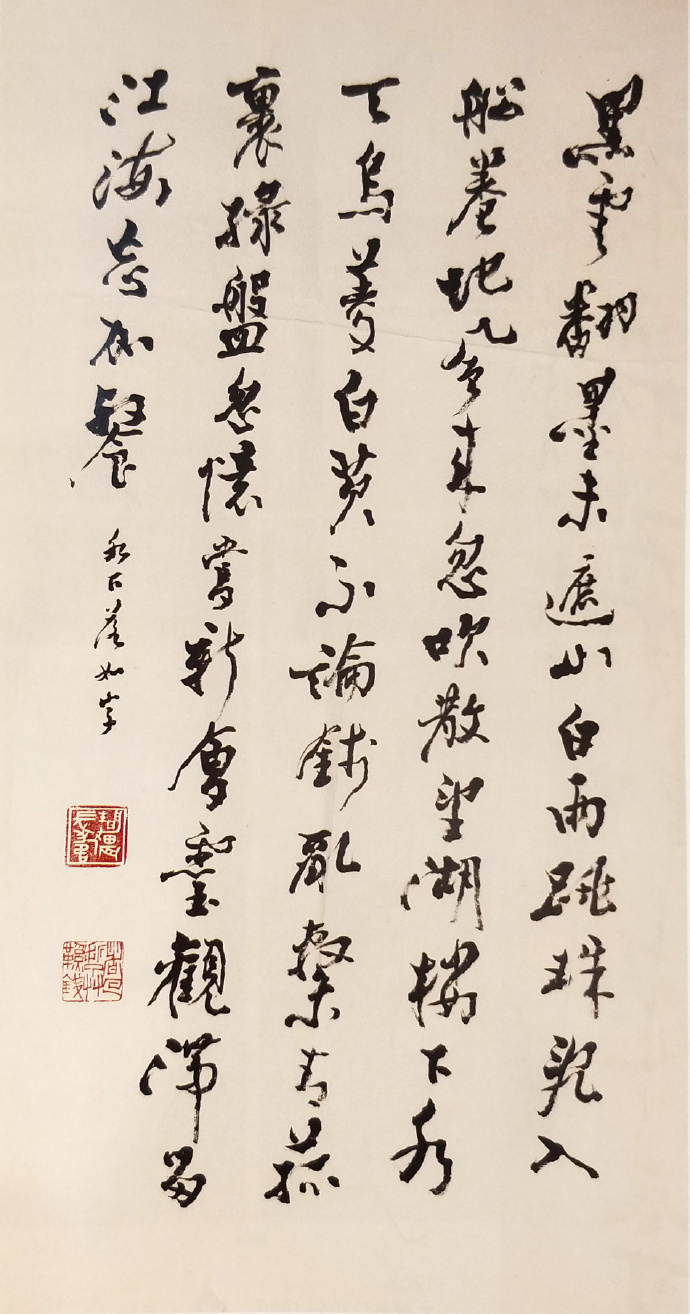 黑雲翻墨未遮山白雨跳珠亂入
船卷地風來忽吹散望湖樓下水
天烏菱白芡不論錢亂繫青菰
裹綠盤忽憶嘗新會靈觀滯留
江海加餐
水下落如字